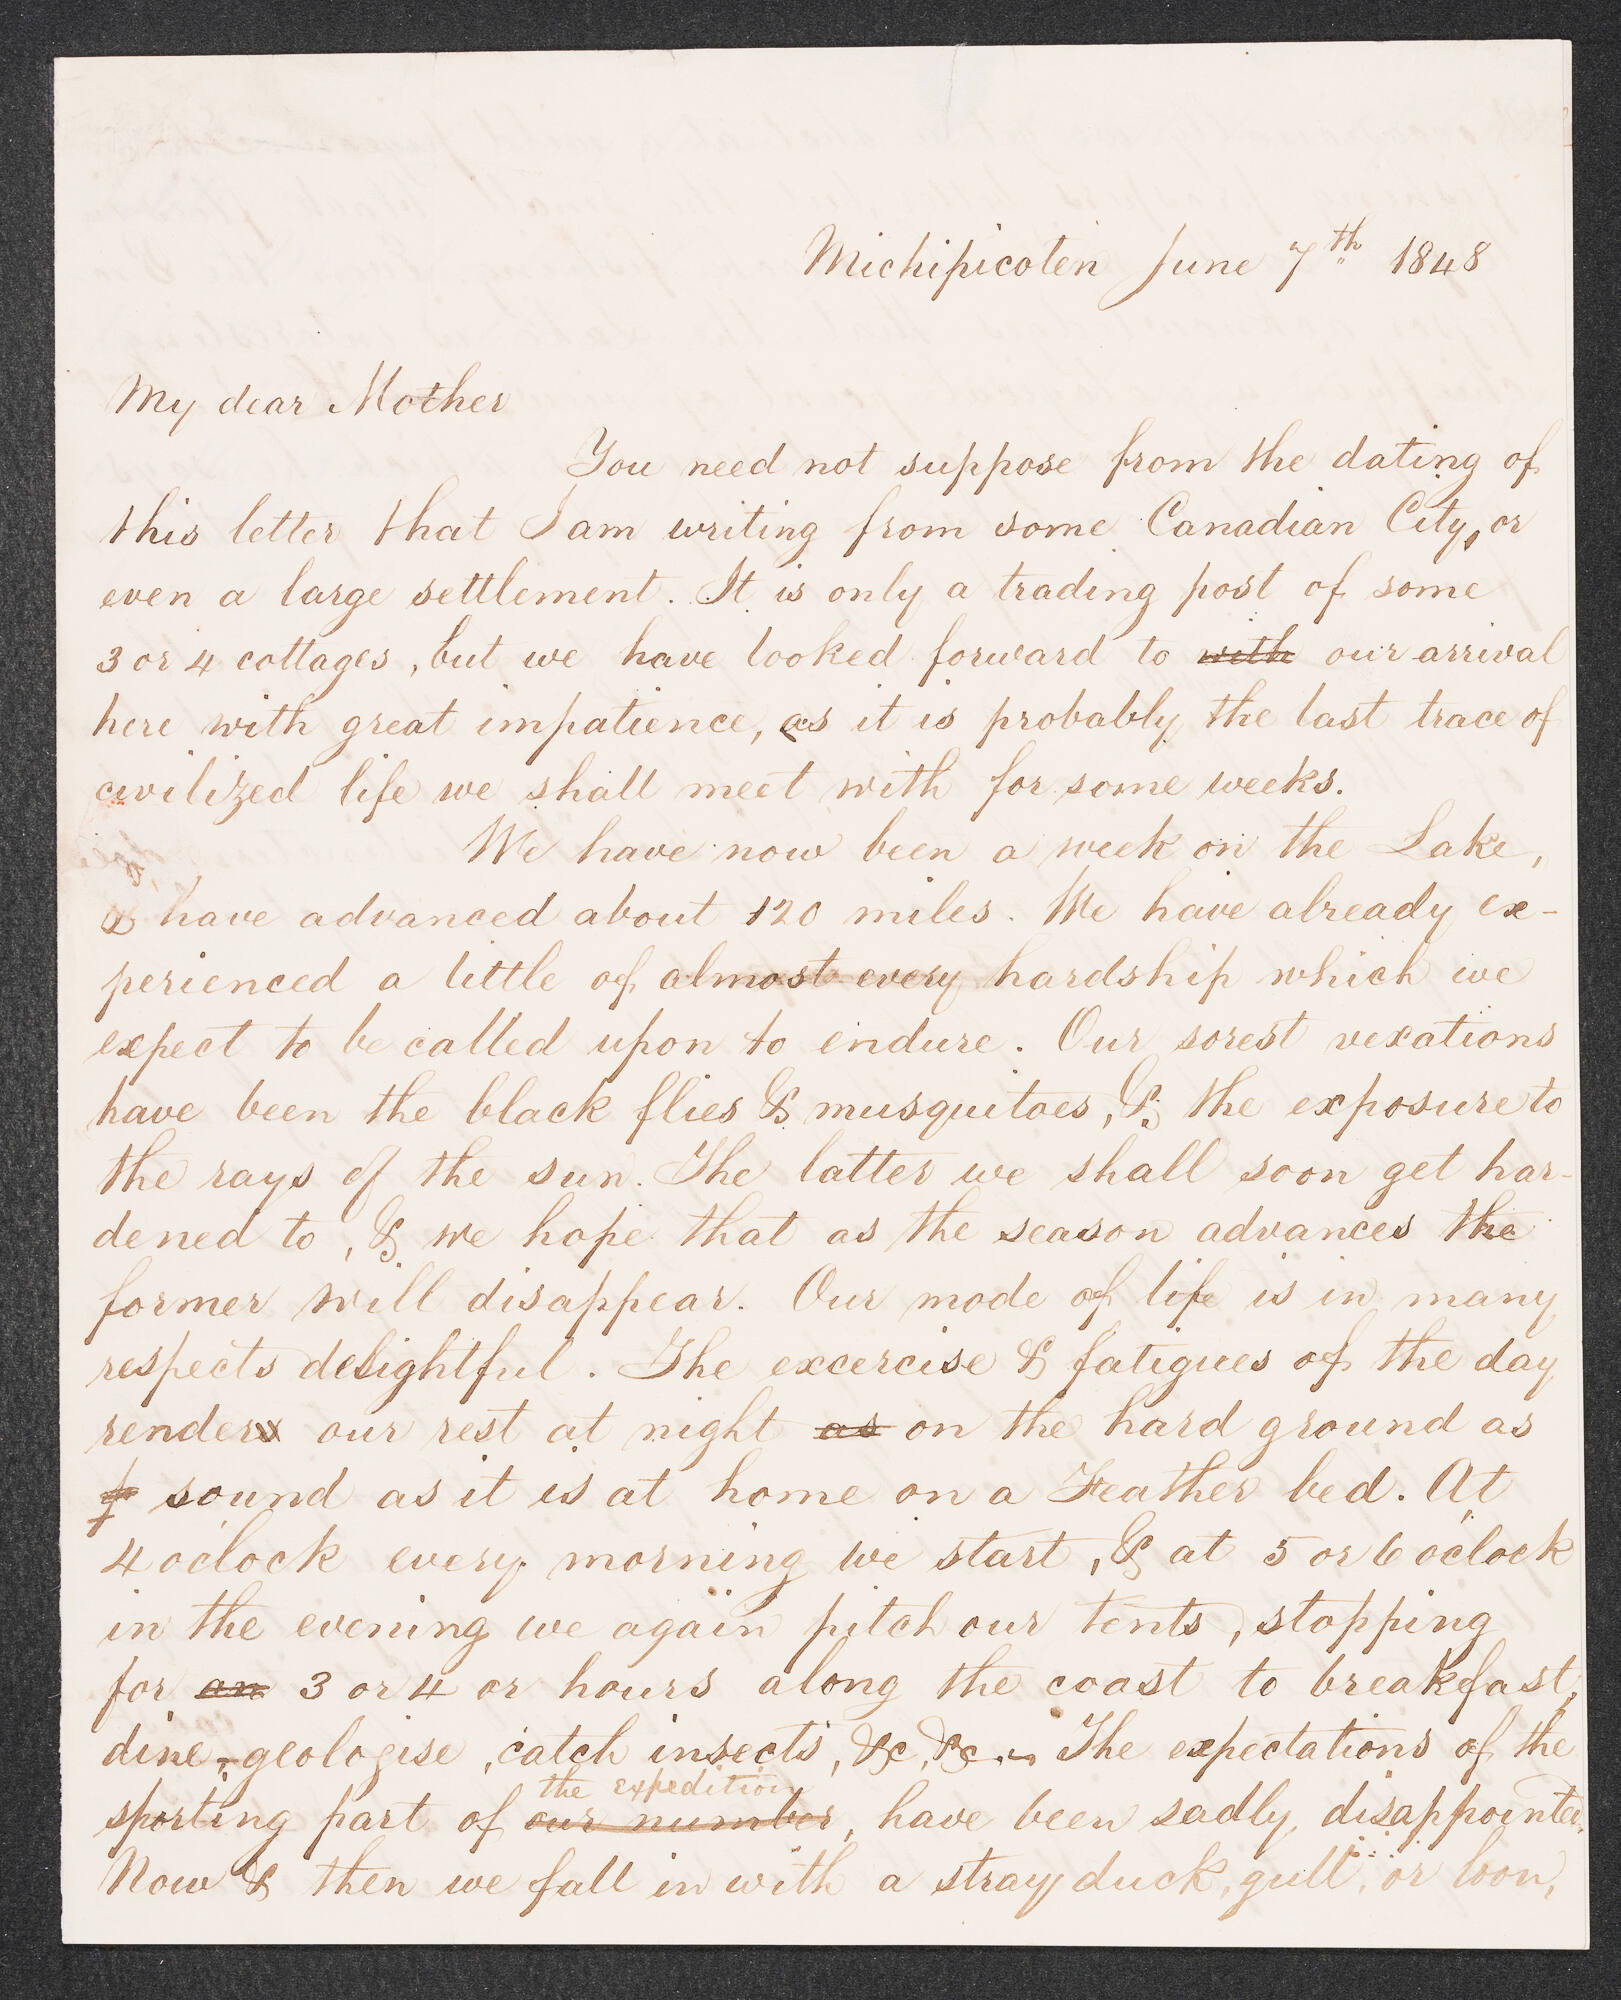 Michipicoten June 7th 1848
My dear Mother
You need not suppose from the dating of
this letter that I am writing from some Canadian City, or
even a large settlement. It is only a trading post of some
3 or 4 cottages, but we have looked forward to with our arrival
here with great impatience, as it is probably the last trace of
civilized life we shall meet with for some weeks.
We have now been a week on the Lake,
& have advanced about 120 miles. We have already ex-
perienced a little of almost every hardship which we
expect to be called upon to endure. Our sorest vexations
have been the black flies & musquitoes, & the exposure to
the rays of the sun. The latter we shall soon get har-
dened to, & we hope that as the season advances the
former will disappear. Our mode of life is in many
respects delightful. The excercise & fatigues of the day
renders our rest at night as on the hard ground as
sound as it is at home on a Feather bed. At
4 o'clock every morning we start, & at 5 or 6 o'clock
in the evening we again pitch our tents, stopping
for an 3 or 4 or hours along the coast to breakfast,
dine, geologise, catch insects, &c, &c. The expectations of the
the expedition
sporting part of our number, have been sadly disappointed.
Now & then we fall in with a stray duck, gull, or loon,